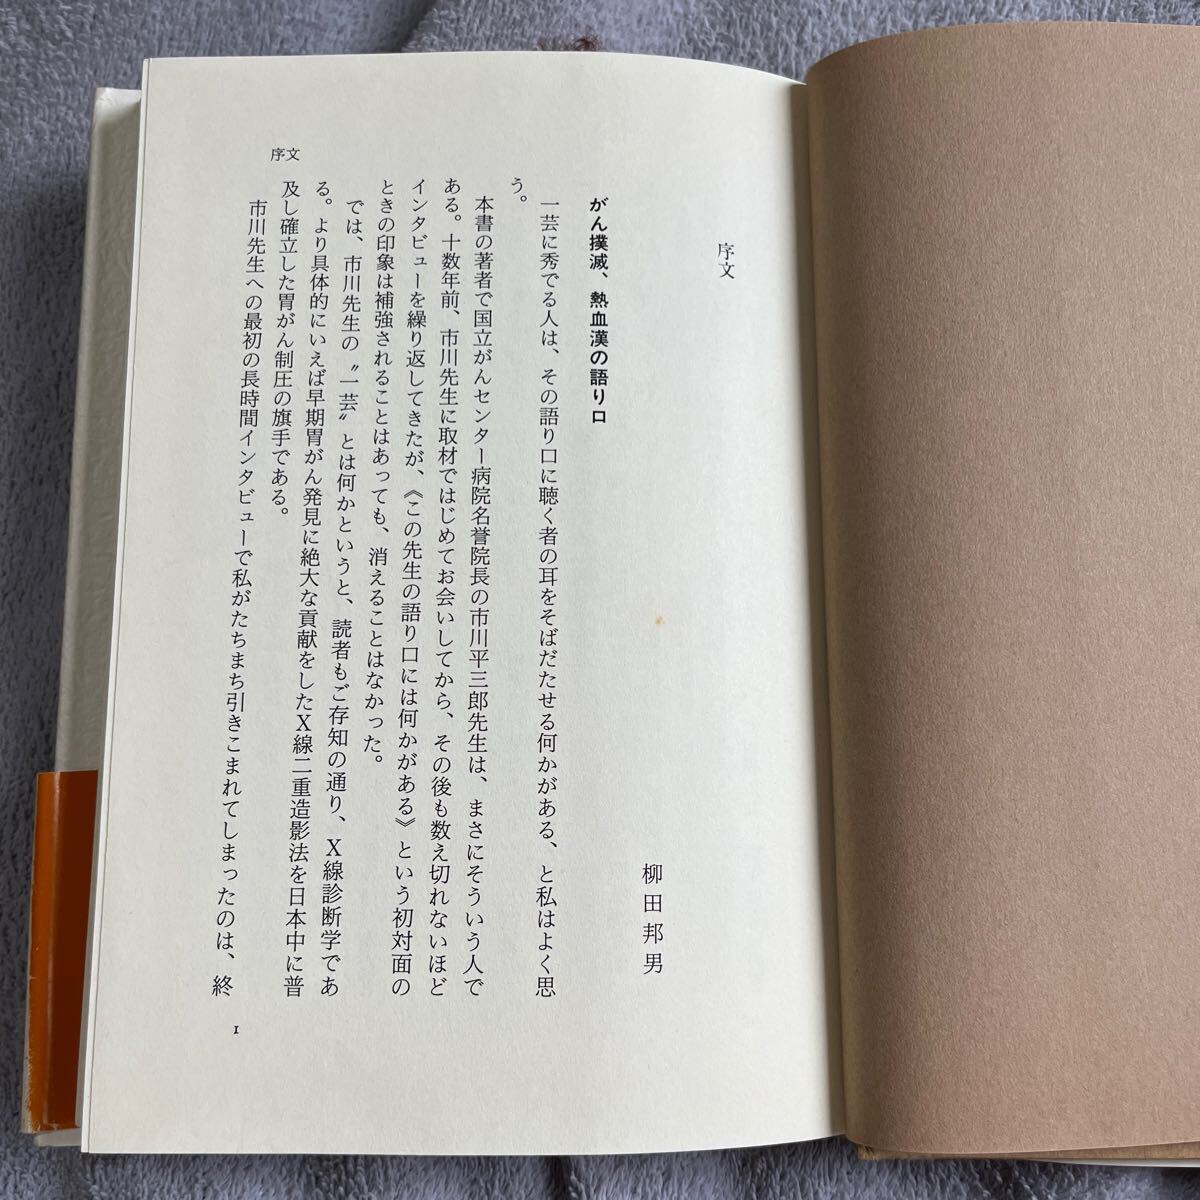 序文
柳田邦男
がん撲滅、熱血漢の語り口
一芸に秀でる人は、その語り口に聴く者の耳をそばだたせる何かがある、と私はよく思
う。
本書の著者で国立がんセンター病院名誉院長の市川平三郎先生は、まさにそういう人で
ある。十数年前、市川先生に取材ではじめてお会いしてから、その後も数え切れないほど
インタビューを繰り返してきたが、《この先生の語り口には何かがある》という初対面の
ときの印象は補強されることはあっても、消えることはなかった。
では、市川先生の〝一芸〟とは何かというと、読者もご存知の通り、X線診断学であ
る。より具体的にいえば早期胃がん発見に絶大な貢献をしたX線二重造影法を日本中に普
及し確立した胃がん制圧の旗手である。
市川先生への最初の長時間インタビューで私がたちまち引きこまれてしまったのは、終
序文
1